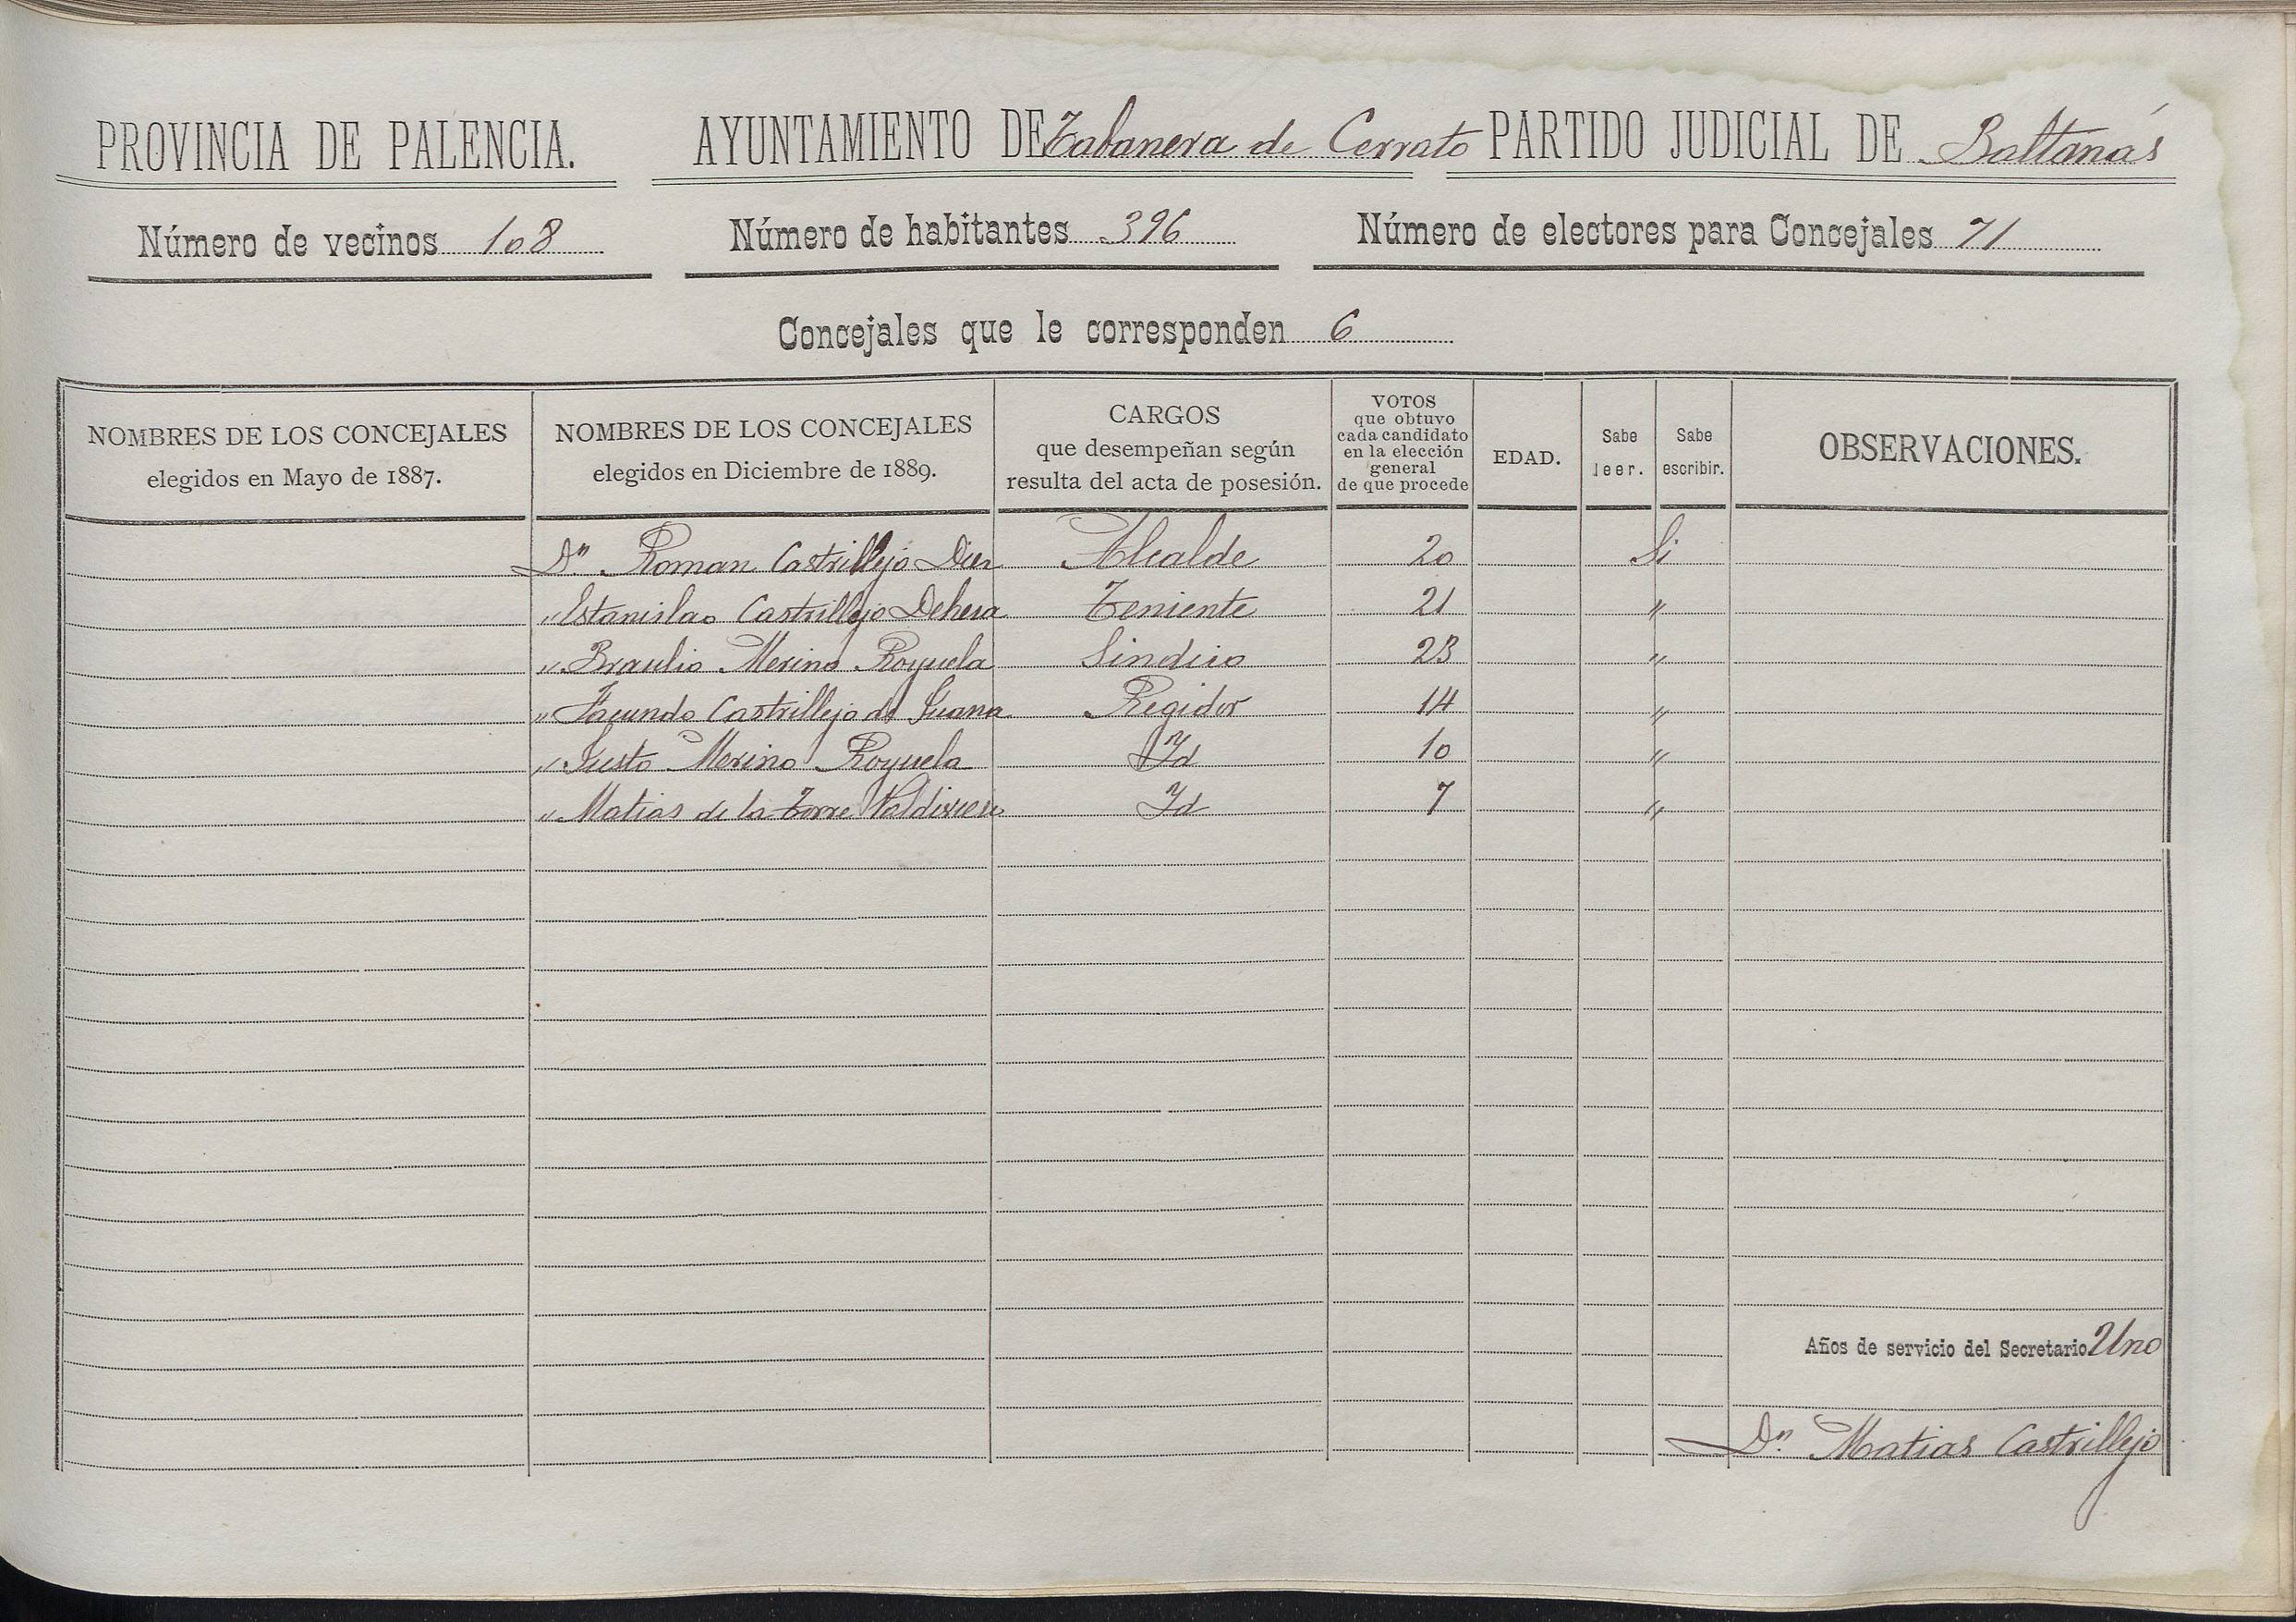 PROVINCIA DE PALENCIA. AYUNTAMIENTO DE Tabanera de Cerrato PARTIDO JUDICIAL DE Baltanás
Número de vecinos 108 Número de habitantes 396 Número de electores para Concejales 71
Concejales que le corresponden 6
NOMBRES DE LOS CONCEJALES elegidos en Mayo de 1887. NOMBRES DE LOS CONCEJALES elegidos en Diciembre de 1889. CARGOS que desempeñan según resulta del acta de posesión. VOTOS que obtuvo cada candidato en la elección general de que procede EDAD. Sabe leer. Sabe escribir. OBSERVACIONES.
Dn Roman Castrillejo Dier Alcalde 20 Si
" Estanislao Castrillejo Dehesa Teniente 21 "
" Braulio Merino Royuela Sindico 23 "
" Facundo Castrillejo de Juana Regidor 14 "
" Justo Merino Royuela Id 10 "
" Matias de la Torre Id 7 "
Años de servicio del Secretario Uno
Dn Matias Castrillejo